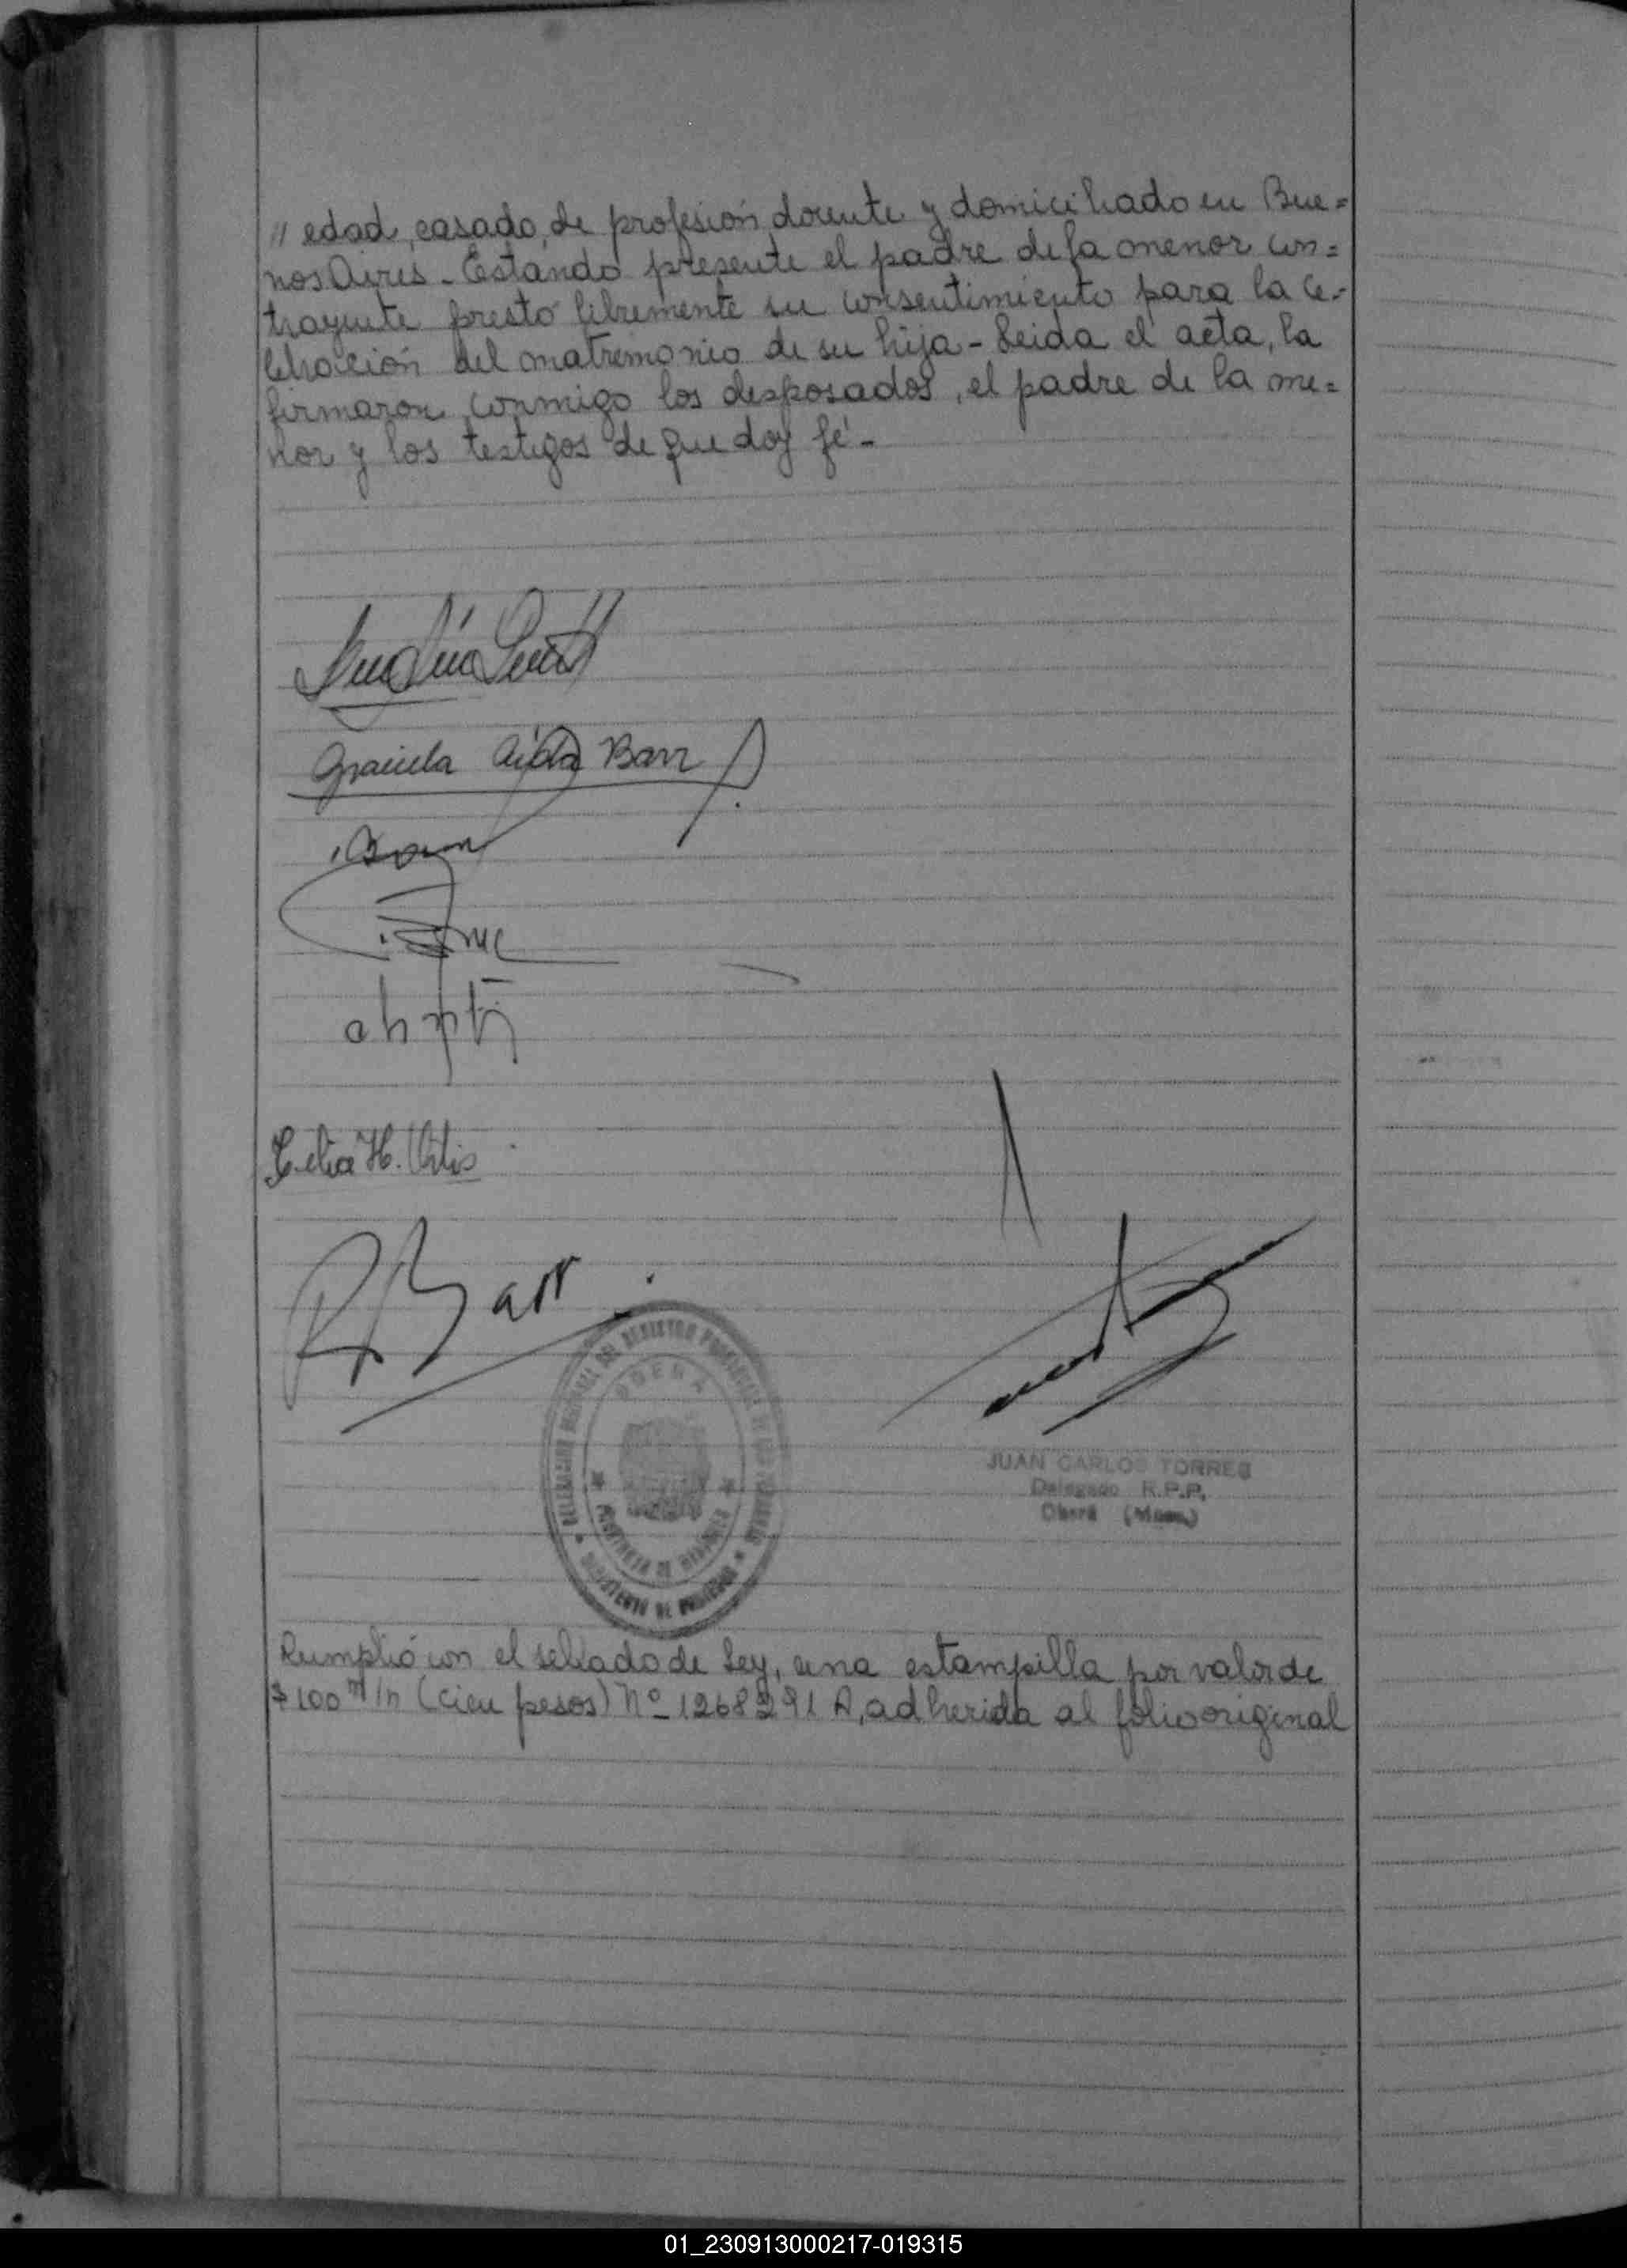 // edad, casado, de profesión docente y domiciliado en Bue=
nos Aires - Estando presente el padre de la menor con=
trayente prestó libremente su consentimiento para la ce-
lebración del matrimonio de su hija - Leida el acta, la
firmaron conmigo los desposados, el padre de la me=
nor y los testigos de que doy fé -
Graciela Aída Barr
Celia H.
R Barr
OBERA
PROVINCIA DE MISIONES
JUAN CARLOS TORRES
Delegado R.P.P.
Oberá (Mnes.)
Cumplió con el sellado de Ley, una estampilla por valor de
$ 100 m/n (cien pesos) Nº 1268291 A, adherida al folio original
01_230913000217-019315